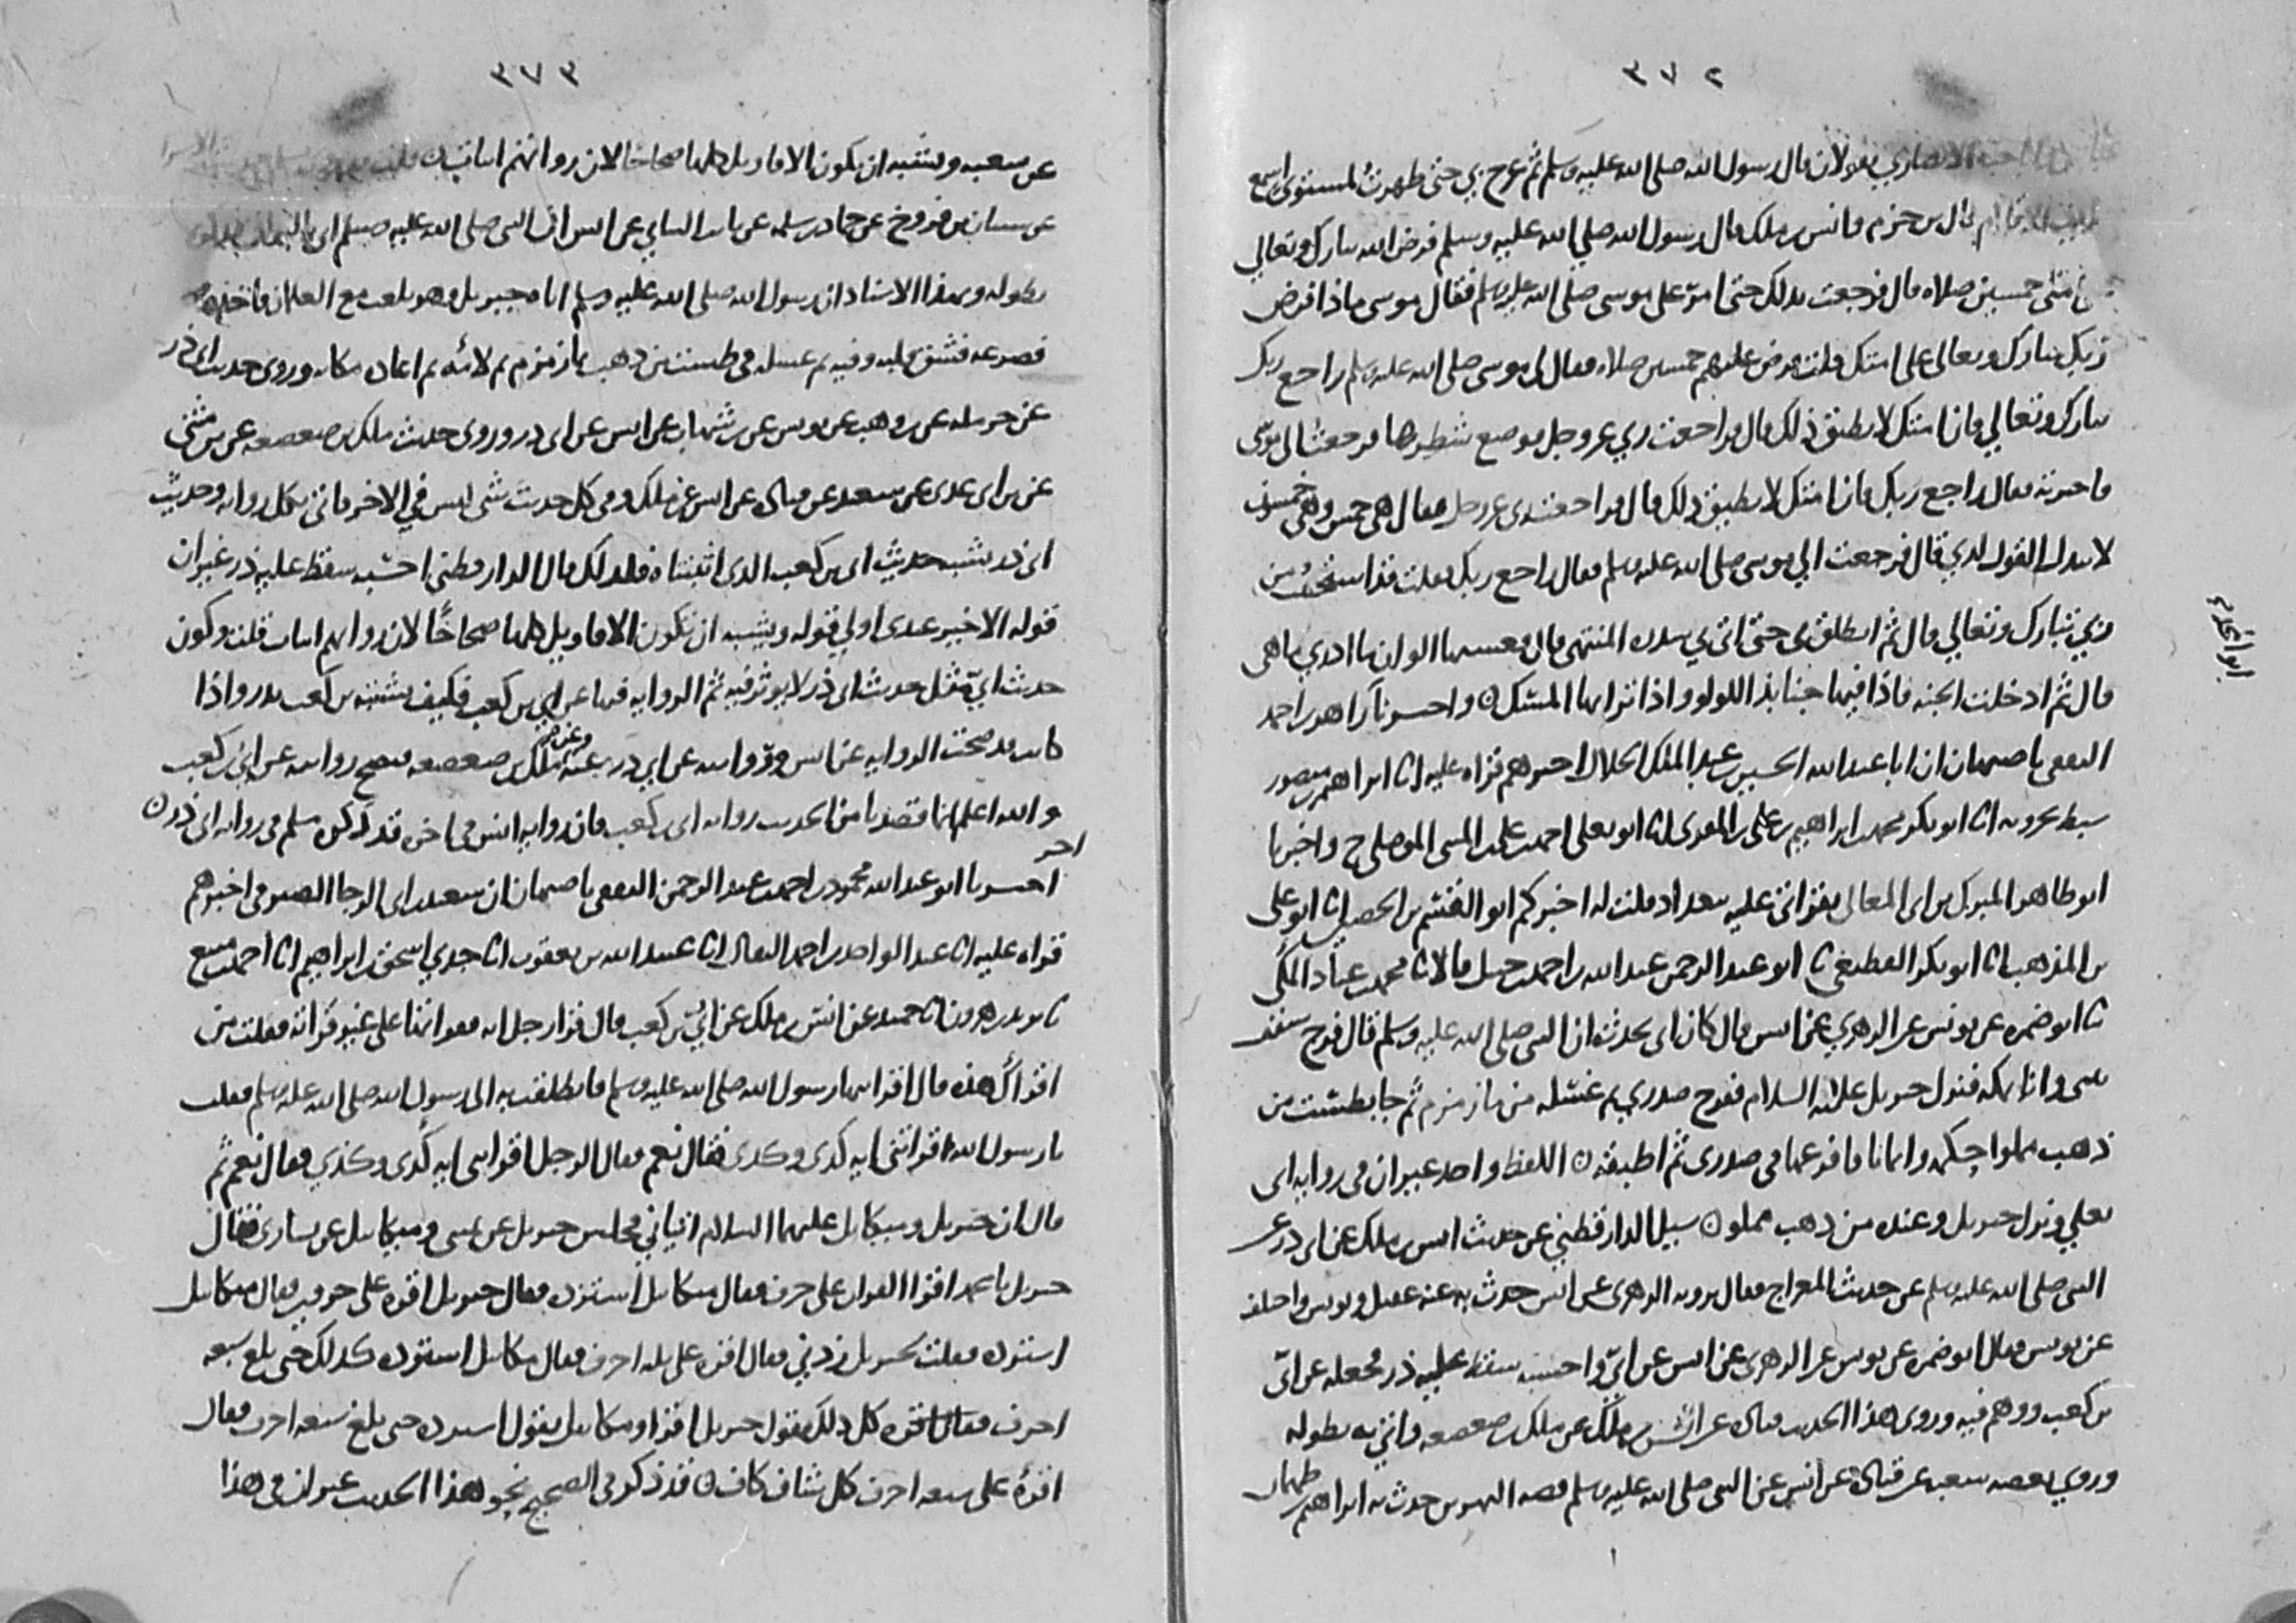 ٣٧٢
الانصاري يقولان قال رسول الله صلى الله عليه وسلم ثم عرج بي حتى ظهرت لمستوى اسمع
قال بن حزم وانس بن ملك قال رسول الله صلى الله عليه وسلم فرض الله تبارك وتعالى
امتى خمسين صلاه قال فرجعت بذلك حتى امر على موسى صلى الله عليه وسلم فقال موسى ماذا افترض
ربك تبارك وتعالى على امتك قلت فرض عليهم خمسين صلاه فقال لى موسى صلى الله عليه وسلم راجع ربك
تبارك وتعالى فان امتك لا تطيق ذلك قال فراجعت ربي عز وجل فوضع شطرها فرجعت الى موسى
فاخبرته فقال راجع ربك فان امتك لا تطيق ذلك قال فراجعت ربى عز وجل فقال هى خمس وهى خمسون
لا يبدل القول لدي قال فرجعت الي موسى صلى الله عليه وسلم فقال راجع ربك فقلت قد استحييت من
ربي تبارك وتعالي قال ثم انطلق بى حتى اتى بي سدره المنتهى قال فغشيها الوان ما ادري ما هى
قال ثم ادخلت الجنه فاذا فيها جنابذ اللولو واذا ترابها المسك ٥ واخبرنا زاهر بن احمد
الثقفى باصبهان ان ابا عبد الله الحسين بن عبد الملك الخلال اخبرهم قراه عليه انا ابراهيم بن منصور
سبط بحرويه انا ابو بكر محمد بن ابراهيم بن على بن المقرى انا ابو يعلى احمد بن على بن المثنى الموصلى ح واخبرنا
ابو طاهر المبرك بن ابى المعالى بقراتى عليه ببغداد قلت له اخبركم ابو القسم بن الحصين انا ابو على
بن المذهب انا ابو بكر القطيعى ثنا ابو عبد الرحمن عبد الله بن احمد بن حنبل قالا ثنا محمد بن عباد المكى
ثنا ابو ضمره عن يونس عن الزهري عن انس قال كان ابى يحدث ان النبى صلى الله عليه وسلم قال فرج سقف
بيتى وانا بمكه فنزل جبريل عليه السلام ففرج صدري ثم غسله من ما زمزم ثم جا بطست من
ذهب مملوا حكمه وايمانا فافرغها فى صدرى ثم اطبقه ٥ اللفظ واحد غير ان فى روايه ابى
يعلي فنزل جبريل وعنده من ذهب مملو ٥ سيل الدارقطني عن حديث انس بن ملك عن ابى ذر عن
النبى صلى الله عليه وسلم عن حديث المعراج فقال يرويه الزهرى عن انس حدث به عنه عقيل ويونس واختلف
عن يونس فقال ابو ضمره عن يونس عن الزهرى عن انس عن ابيّ واحسبه سقط عليه ذر فجعله عن ابيّ
بن كعب ووهم فيه وروى هذا الحديث قتاده عن انس بن ملك عن ملك بن صعصعه واتى به بطوله
وروي بعضه شعبه عن قتاده عن انس عن النبى صلى الله عليه وسلم قصه النهرين حدث به ابراهيم بن طهمان
٣٧٣
عن شعبه ويشبه ان يكون الاقاويل كلها صحاحا لان رواتهم اثبات ٥ قلت
عن شيبان بن فروخ عن حماد بن سلمه عن ثابت البناني عن انس ان النبى صلى الله عليه وسلم اتى بالبراق
بطوله وبهذا الاسناد ان رسول الله صلى الله عليه وسلم اتاه جبريل وهو يلعب مع الغلمان فاخذه
فصرعه فشق قلبه وفيه ثم غسله فى طست من ذهب بما زمزم ثم لامه ثم اعاده مكانه وروى حديث ابى ذر
عن حرمله عن بن وهب عن يونس عن بن شهاب عن انس عن ابى ذر وروى حديث ملك بن صعصعه عن بن مثنى
عن بن ابى عدى عن سعيد عن قتاده عن انس عن ملك وفى كل حديث شى ليس في الاخر فاتى بكل روايه وحديث
ابى ذر يشبه حديث ابى بن كعب الذى اثبتناه فلذلك قال الدارقطنى احسبه سقط عليه ذر غير ان
قوله الاخير عندى اولي قوله ويشبه ان تكون الاقاويل كلها صحاحًا لان رواتهم اثبات قلت وكون
حديث ابيّ مثل حديث ابى ذر لا يوثر فيه ثم الروايه فيها عن ابي بن كعب فكيف يشتبه بن كعب بذر واذا
كانت قد صحت الروايه عن انس وروايته عن ابي ذر وعن ملك بن صعصعه فتصح روايته عن ابي بن كعب
والله اعلم انما قصدنا من الحديث روايه ابى بن كعب فان روايه انس فى اخره قد ذكره مسلم فى روايه ابى ذر ٥
اخر
اخبرنا ابو عبد الله محمود بن احمد بن عبد الرحمن الثقفى باصبهان ان سعيد بن ابى الرجا الصيرفى اخبرهم
قراه عليه انا عبد الواحد بن احمد البقال انا عبيد الله بن يعقوب انا جدي اسحق بن ابراهيم انا احمد بن منيع
ثنا يزيد بن هرون انا حميد عن انس بن ملك عن ابيّ بن كعب قال قرا رجل ايه فقراتها على غير قراته فقلت من
اقراك هذه قال اقرانيها رسول الله صلى الله عليه وسلم فانطلقت به الى رسول الله صلى الله عليه وسلم فقلت
يا رسول الله اقراتنى ايه كدى وكدى فقال نعم فقال الرجل اقراتنى ايه كدى وكذي فقال نعم ثم
قال ان جبريل وميكايل عليهما السلام اتياني فجلس جبريل عن يمينى وميكايل عن يسارى فقال
جبريل يا محمد اقرا القران على حرف فقال ميكايل استزده فقال جبريل اقره على حرفين فقال ميكايل
استزده فقلت لجبريل زدني فقال اقره على ثلثه احرف فقال ميكايل استزده كذلك حتى بلغ سبعه
احرف فقال اقره كل ذلك يقول جبريل اقرا وميكايل يقول استزده حتى بلغ سبعه احرف فقال
اقرهُ على سبعه احرف كل شاف كاف ٥ قد ذكر فى الصحيح نحو هذا الحديث غير ان فى هذا